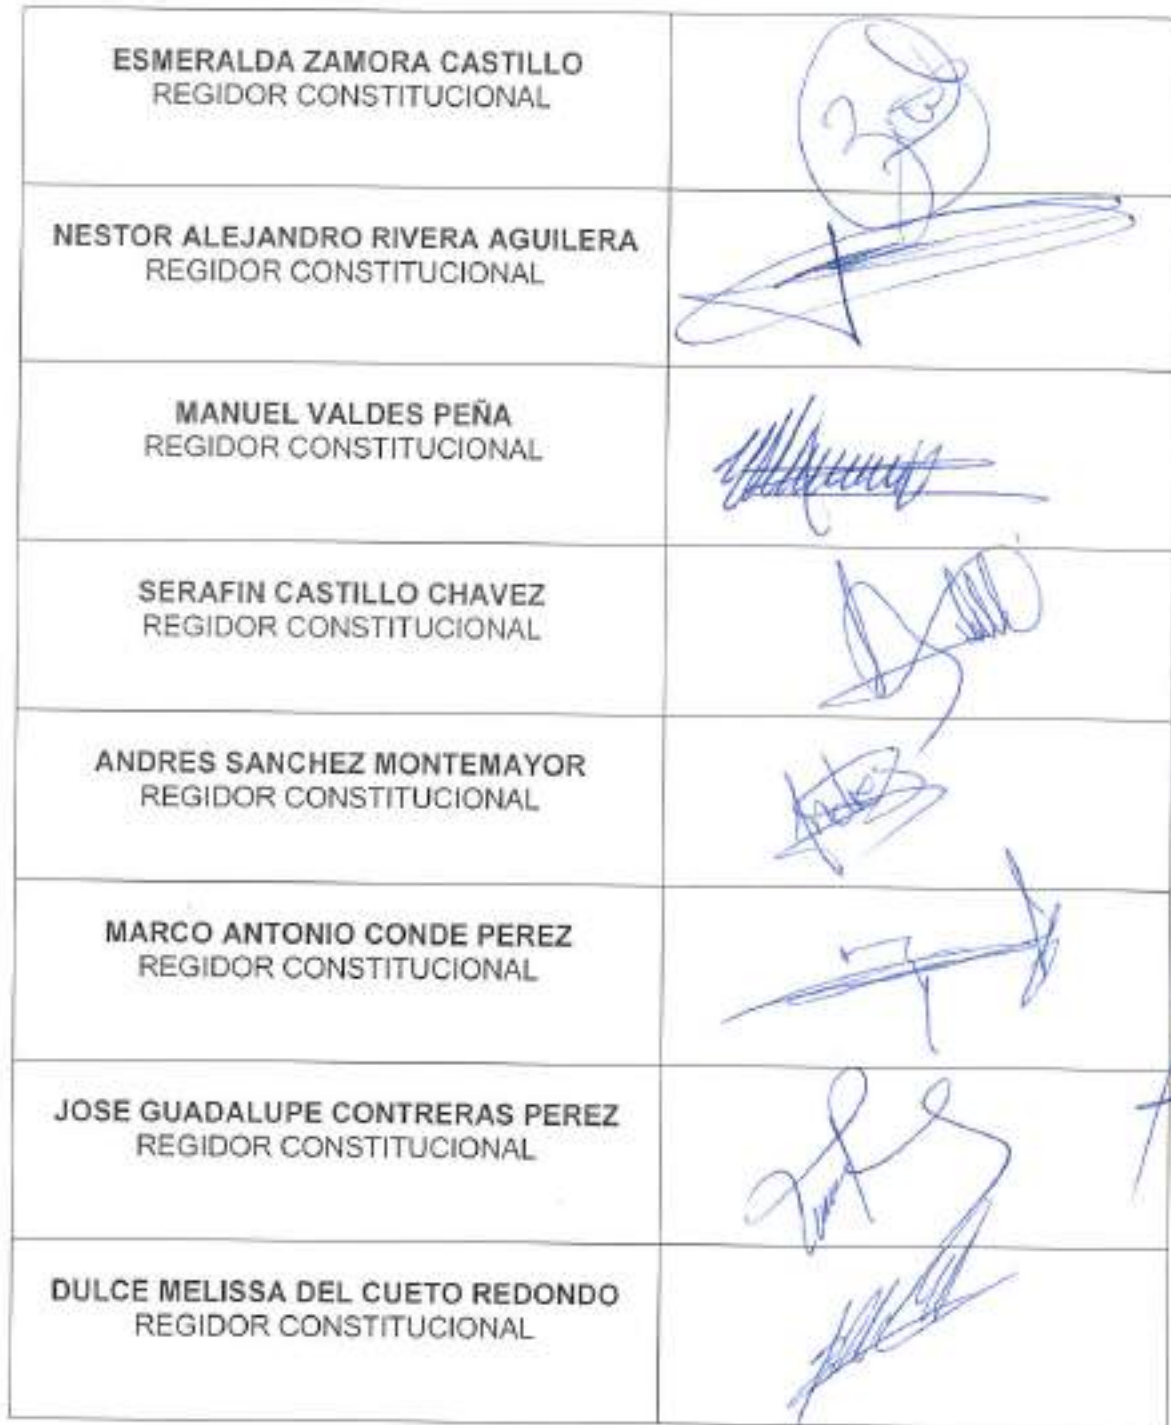 ESMERALDA ZAMORA CASTILLO
REGIDOR CONSTITUCIONAL
NESTOR ALEJANDRO RIVERA AGUILERA
REGIDOR CONSTITUCIONAL
MANUEL VALDES PEÑA
REGIDOR CONSTITUCIONAL
SERAFIN CASTILLO CHAVEZ
REGIDOR CONSTITUCIONAL
ANDRES SANCHEZ MONTEMAYOR
REGIDOR CONSTITUCIONAL
MARCO ANTONIO CONDE PEREZ
REGIDOR CONSTITUCIONAL
JOSE GUADALUPE CONTRERAS PEREZ
REGIDOR CONSTITUCIONAL
DULCE MELISSA DEL CUETO REDONDO
REGIDOR CONSTITUCIONAL